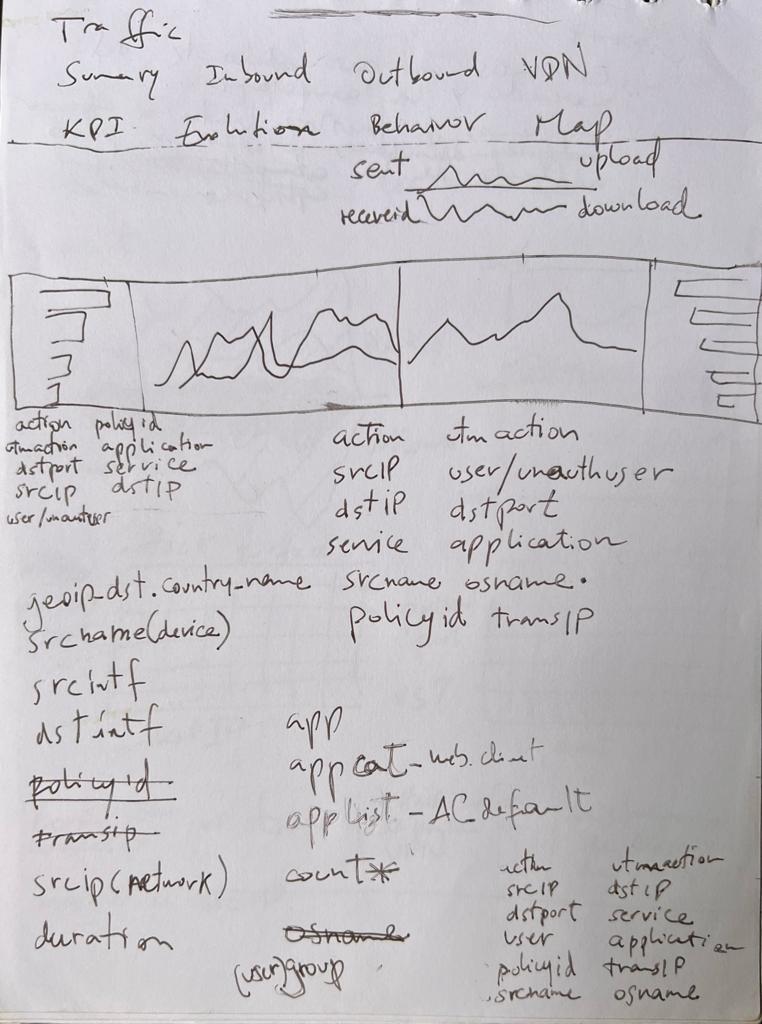 Traffic
Summary Inbound Outbound VPN
KPI Evolution Behavior Map
sent upload
receveid download
action policyid
utmaction application
dstport service
srcIP dstIP
user/unautuser
action utm action
srcIP user/unauthuser
dstip dstport
service application
geoip_dst.country_name srcname osname.
srchame(device) policyid transIP
srcintf
dstintf
app
appcat-web.client
policyid
applist-ACdefault
transip
srcip(network) count*
duration osname
(user)group
action utmaction
srcIP dstip
dstport service
user application
policyid transIP
srcname osname